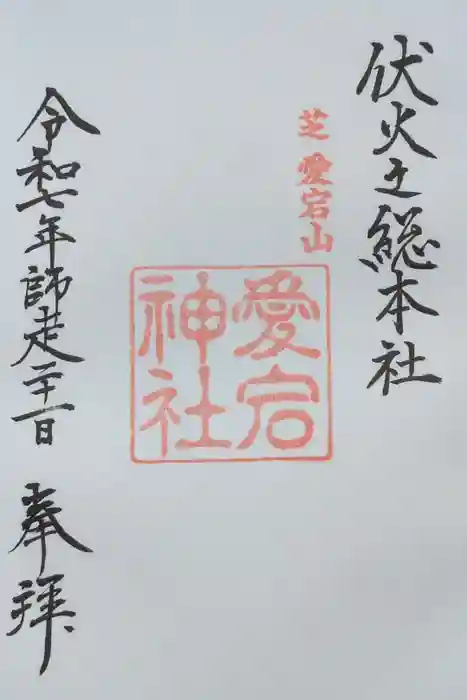 伏火之総本社
芝愛宕山
愛宕
神社
令和七年師走二十一日
奉拝